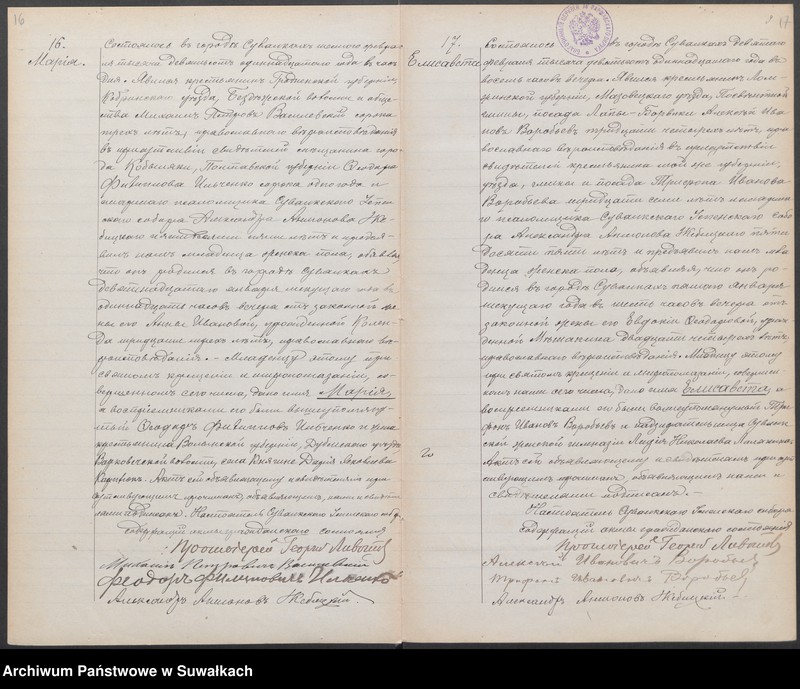 16
16.
Марія.
Состоялось въ городѣ Сувалкахъ шестого февра-
ля тысяча девятьсотъ одиннадцатого года въ часъ
дня. Явился крестьянинъ Гродненской губерніи,
Кобринского уѣзда, Бездѣжской волости и обще-
ства Михаилъ Петровъ Василевскій сорока
трехъ лѣтъ, православного вѣроисповѣданія
въ присутствіи свидѣтелей мѣщанина горо-
да Кобыляки, Полтавской губерніи Ѳеодора
Филиппова Ильченко сорока одного года и
псаломщика Сувалкского Успен-
ского собора Александра Антонова Жеб-
ицкого пятидесяти пяти лѣтъ и предъя-
вилъ намъ младенца женска пола, объявляя,
что онъ родился въ городѣ Сувалкахъ
девятнадцатого января текущаго года въ
одиннадцать часовъ вечера отъ законной же-
ны его Анны Ивановой, урожденной
тридцати трехъ лѣтъ, православного вѣ-
роисповѣданія. – Младенцу этому при
святомъ крещеніи и миропомазаніи, со-
вершенномъ сего числа, дано имя Марія,
а воспріемниками его были вышеупомяну-
тый Ѳеодоръ Филипповъ Ильченко и
крестьянка Волынской губерніи, Дубенского уѣзда
Варковичской волости, села Княгине Дарія Яковлева
Актъ сей объявляющему и свидѣтелямъ при-
сутствующимъ прочитанъ, объявляющимъ, нами и свидѣте-
лями подписанъ. Настоятель Сувалкского Успенского собора
содержащій акты гражданского состоянія
Протоіерей Георгій
Михаилъ Петровичъ Василевскій
Феодоръ Филиповичъ Ильченко
Александръ Антоновъ Жебицкій.
17
17.
Елисавета
Состоялось въ городѣ Сувалкахъ девятаго
февраля тысяча девятьсотъ одиннадцатого года въ
восемь часовъ вечера. Явился крестьянинъ Лом-
жинской губерніи, Мазовецкого уѣзда,
гмины, посада Лапы-Боровики Алексѣй Ива-
новъ Воробьевъ тридцати четырехъ лѣтъ, пра-
вославного вѣроисповѣданія въ присутствіи
свидѣтелей крестьянина той же губерніи,
уѣзда, гмины и посада Трифона Иванова
Воробьева тридцати семи лѣтъ
и псаломщика Сувалкского Успенского собо-
ра Александра Антонова Жебицкого пяти-
десяти пяти лѣтъ и предъявилъ намъ мла-
денца женска пола, объявляя, что онъ ро-
дился въ городѣ Сувалкахъ января
текущаго года въ шесть часовъ вечера отъ
законной жены его Евдокіи Ѳеодоровой, урож-
денной двадцати четырехъ лѣтъ,
православного вѣроисповѣданія. Младенцу этому
при святомъ крещеніи и миропомазаніи, совершен-
номъ нами сего числа, дано имя Елисавета, а
воспріемниками его были вышеупомянутый Три-
фонъ Ивановъ Воробьевъ и надзирательница Сувалк-
ской женской гимназіи Лидія Николаева
Актъ сей объявляющему и свидѣтелямъ при-
сутствующимъ прочитанъ, объявляющимъ нами и
свидѣтелями подписанъ. –
Настоятель Сувалкского Успенского собора
содержащій акты гражданского состоянія
Протоіерей Георгій
Алексѣй Ивановичъ Воробьевъ
Трифонъ Ивановичъ Воробьевъ
Александръ Антоновъ Жебицкій –
Archiwum Państwowe w Suwałkach